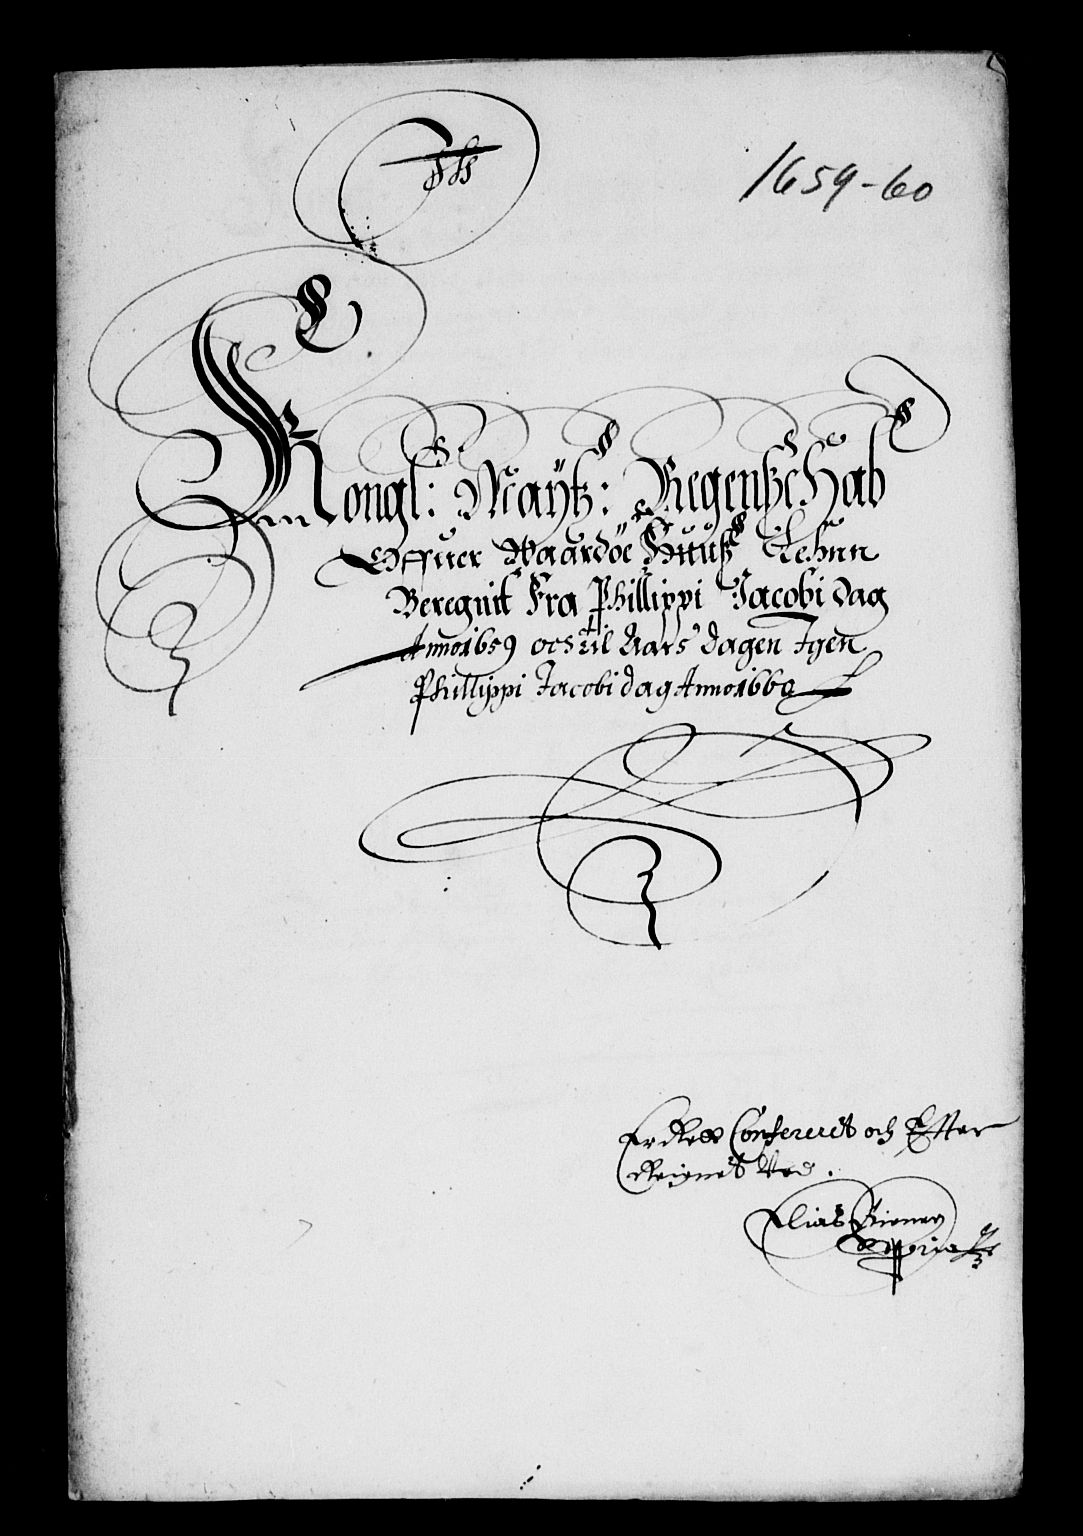 1659-60
Kongl: Maytz: Regenskab
Offuer Waardøe Huuß Lehnn
Beregnit Fra Phillippi Jacobi dag
Anno 1659 och til Aars dagen Igen
Phillippi Jacobi dag Anno 1660
Confererit och Efter
Reignet Ved.
Elias